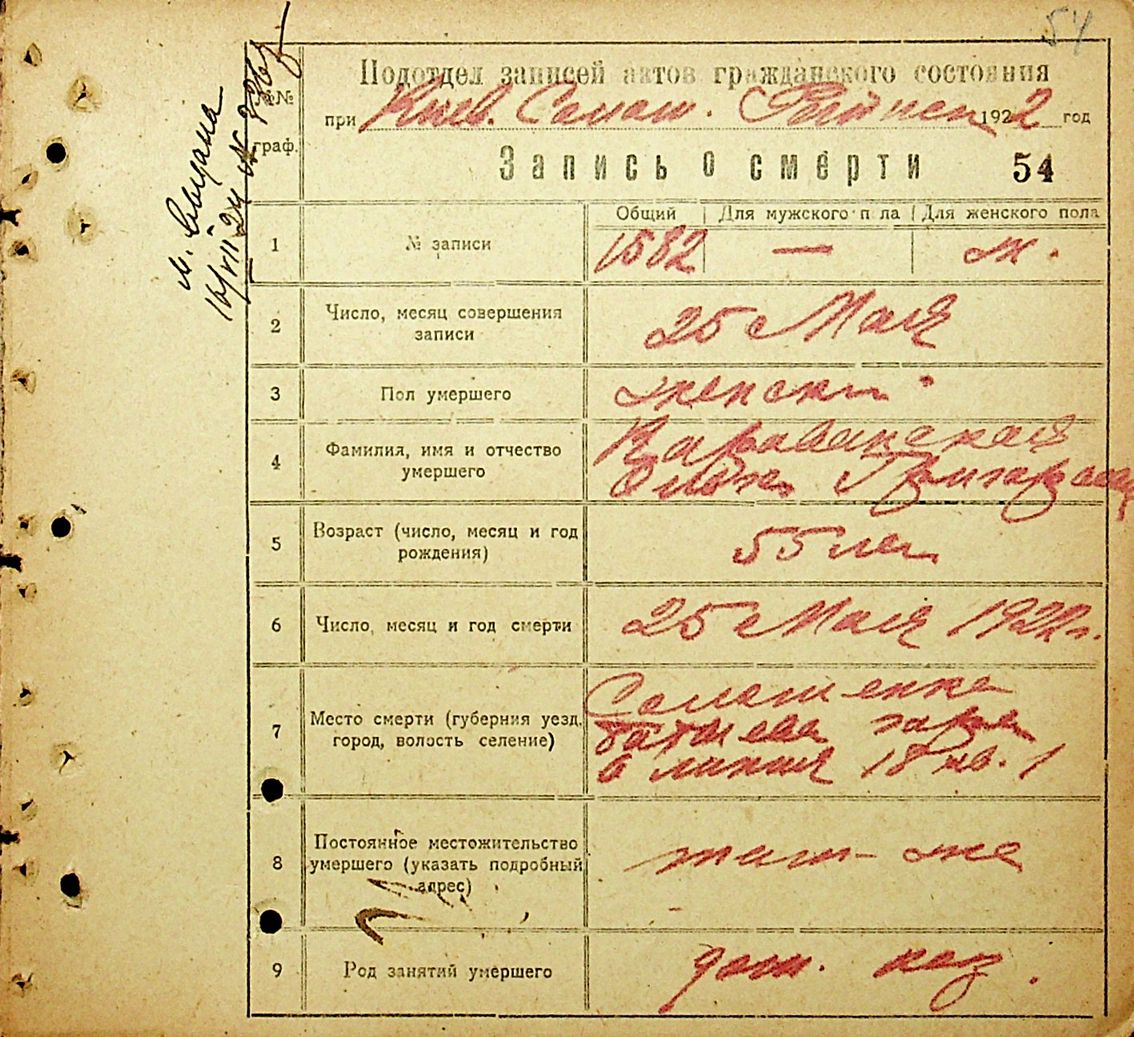 54
Подотдел записей актов гражданского состояния
при Киев. Солом. 1922 год
№№ граф.
Запись о смерти 54
Общий Для мужского пола Для женского пола
1 № записи 1582 — ж.
2 Число, месяц совершения
записи
25 Мая
3 Пол умершего женский
4 Фамилия, имя и отчество
умершего
Караванская
Ольга Григорьев
5 Возраст (число, месяц и год
рождения)
55 лет
6 Число, месяц и год смерти 25 Мая 1922 г.
7 Место смерти (губерния уезд,
город, волость селение)
Соломенка
батыева гора
6 линия 18 кв. 1
8 Постоянное местожительство
умершего (указать подробный
адрес)
там-же
9 Род занятий умершего дом. хоз.